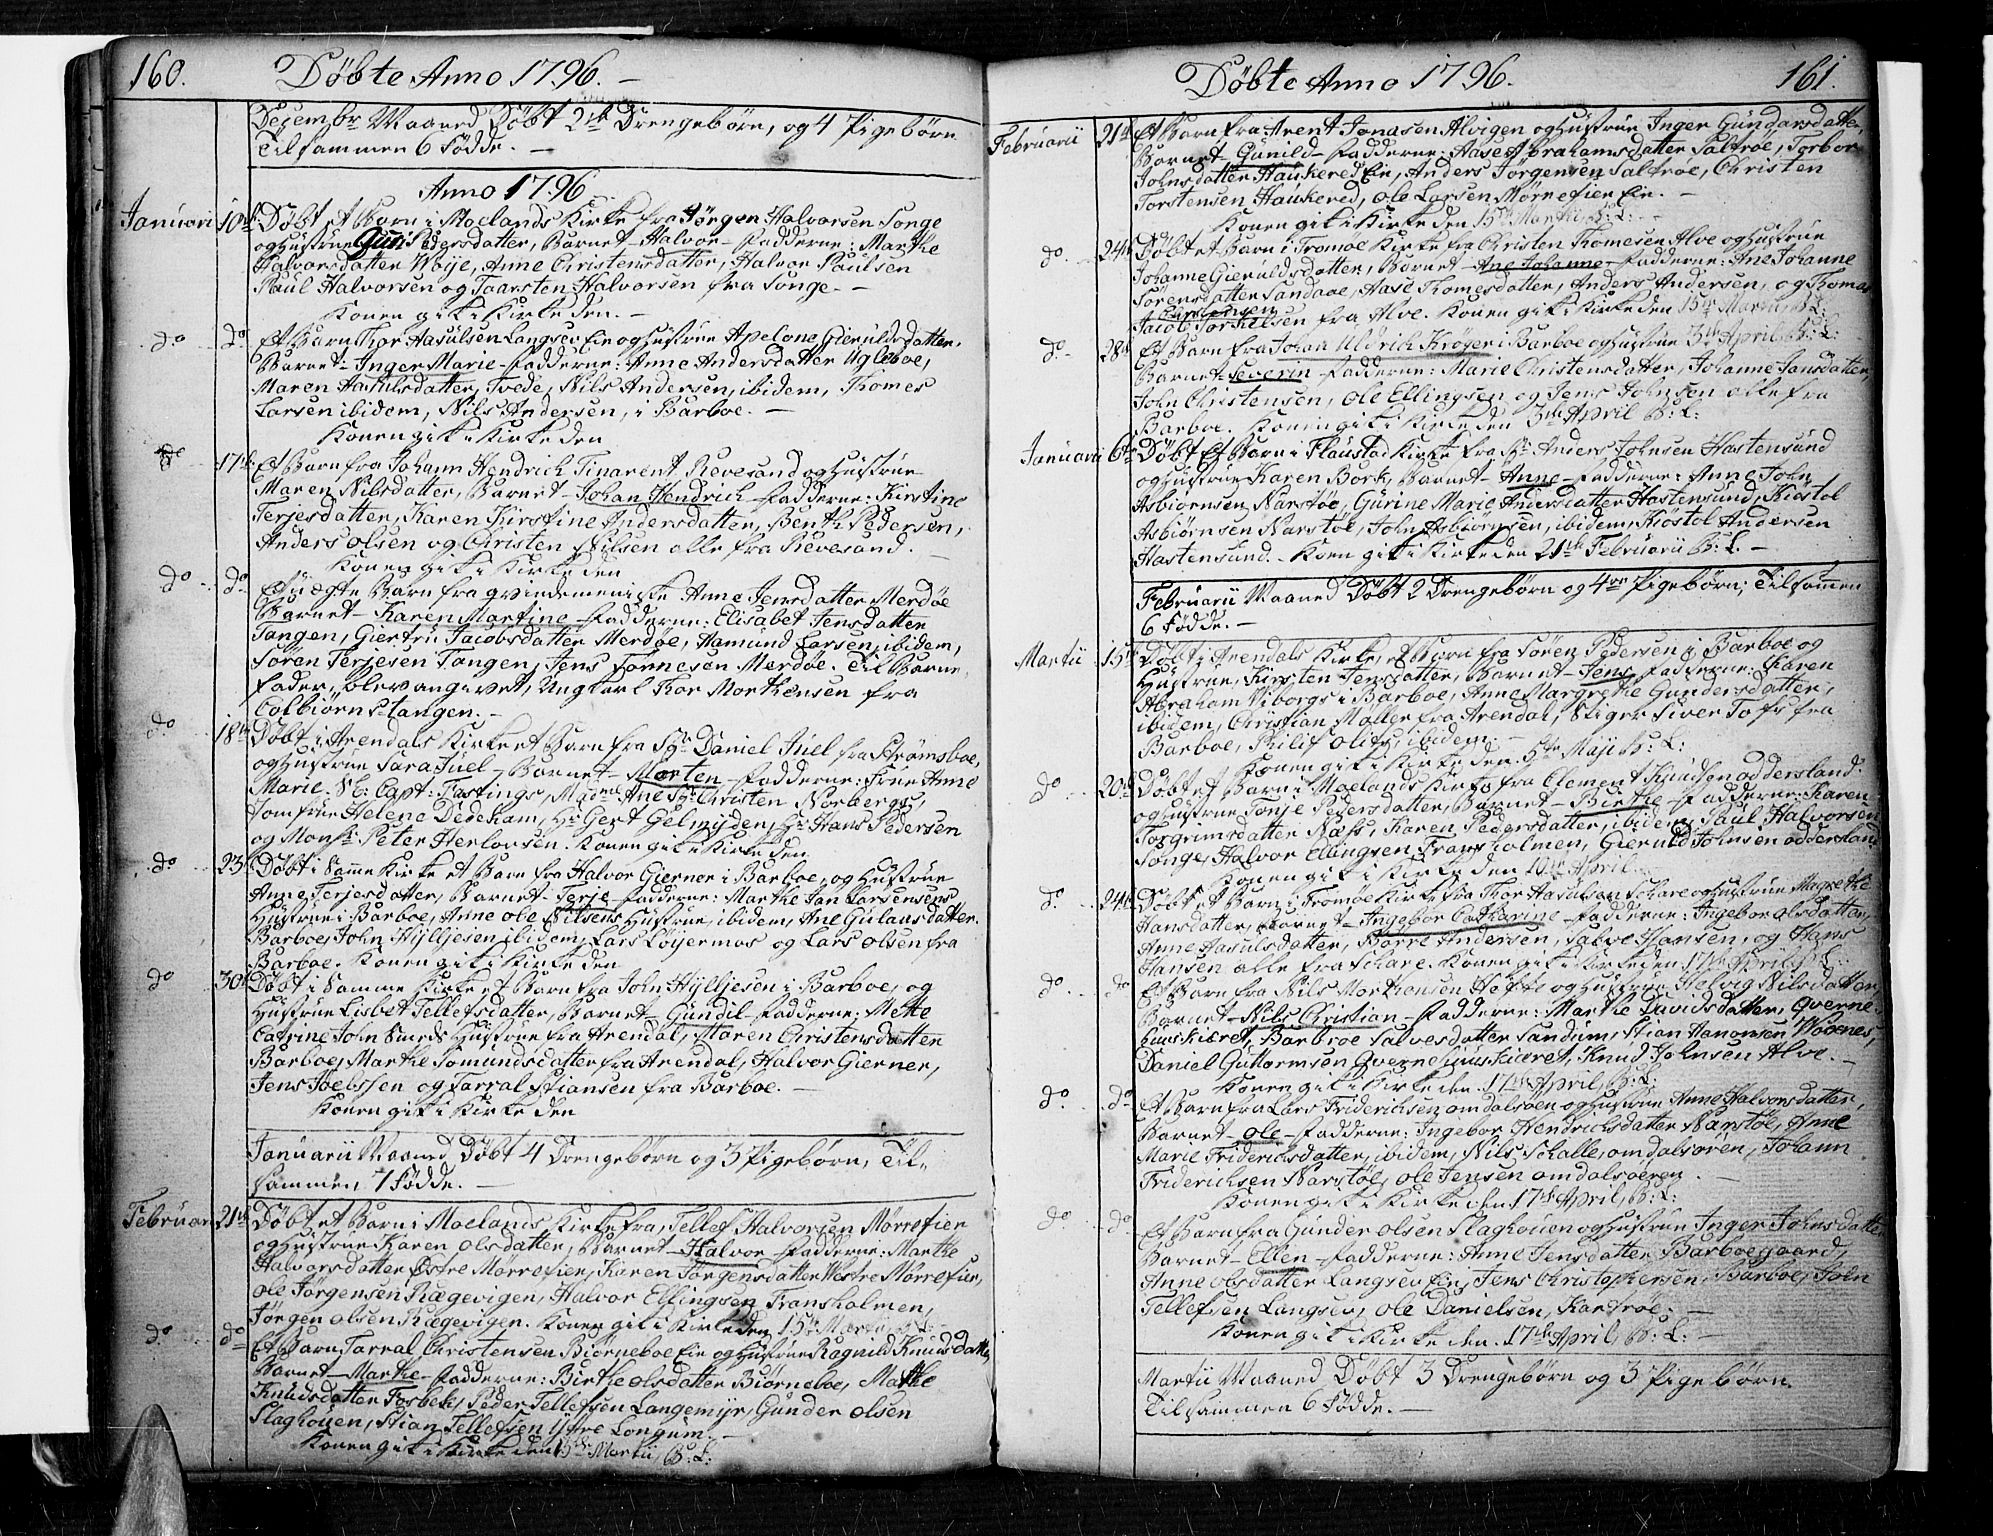 160. Døbte Anno 1796. —
Decembr Maaned Døbt 2de Drengebørn, og 4 Pigebørn
Tilsammen 6 Fødde. —
Anno 1796
Januari 10de Døbt et Barn i Moelands Kirke fra Jørgen Halvorsen Songe
og Hustrue Guri Pedersdatter, Barnet - Halvor - Fadderne: Marthe
Halvorsdatter Woije, Anne Christensdatter, Halvor Paulsen
Paul Halvorsen og Taarsten Halvorsen fra Songe. —
Konen gik i Kirke den. —
do do Et Barn Thor Aasulsen Langsev Eie og Hustrue Apelone Gieruldsdatter,
Barnet - Inger Marie - Fadderne: Anne Andersdatter Ugleboe,
Maren Aasulsdatter, Tvede, Nils Andersen, ibidem, Thomes
Larsen ibidem, Nils Andersen, i Barboe. —
Konen gik i Kirke den
do 17de Et Barn fra Johann Hendrich Tinarent Revesand og Hustrue
Maren Nilsdatter, Barnet - Johan Hendrich - Fadderne: Kirstine
Terjesdatter, Karen Kirstine Andersdatter, Benth Pedersen,
Anders Olsen og Christen Nilsen alle fra Revesand. —
Konen gik i Kirke den
do do Et uægte Barn fra qvindemeniske Anne Jensdatter Merdøe
Barnet - Karen Martine - Fadderne: Elisabet Jensdatter
Tangen, Giertru Jacobsdatter Merdøe, Aamund Larsen, ibidem,
Søren Terjesen Tangen, Jens Tønnesen Merdøe. Til Barne-
fader, blev angivet, Ungkarl Thor Morthensen fra
Colbiørns-tangen. —
do 18de Døbt i Arendals Kirke et Barn fra Sgr Daniel Juel fra Strømsboe,
og Hustrue Sara Juel - Barnet - Morten - Fadderne: Frue Anne
Marie Sl: Capt: Fastings, Madme Ane Hr Christen Norbergs,
Jomfrue Helene Dedekam, Hr Gert Gelmyden, Hr Hans Pedersen
og Monsr Peter Herlovsen. Konen gik i Kirke den
do 23de Døbt i Samme Kirke et Barn fra Halvor Gierner i Barboe, og Hustrue
Anne Terjesdatter, Barnet - Terje - Fadderne: Marthe Jan Larsensens
Hustrue i Barboe, Anne Ole Nilsens Hustrue, ibidem, Ane Gulausdatter
Barboe, John Hylljesen ibidem, Lars Løyermos og Lars Olsen fra
Barboe. Konen gik i Kirke den
do 30de Døbt i Samme Kirke et Barn fra John Hylljesen i Barboe, og
Hustrue Lisbet Tellefsdatter, Barnet - Gundil - Fadderne: Mette
Catrine John Smeds Hustrue fra Arendal, Maren Christensdatter
Barboe, Marthe Tomundsdatter fra Arendal, Halvor Gierner,
Jens Joelssen og Tarral Stiansen fra Barboe. —
Konen gik i Kirke den
Januarii Maaned Døbt 4 Drengebørn og 3 Pigebørn, Til-
sammen 7 Fødde. —
Februar 21de Døbt et Barn i Moelands Kirke fra, Tellef Halvorsen Mørrefier
og Hustrue Karen Olsdatter, Barnet - Halvor - Fadderne: Marthe
Halvorsdatter Østre Mørrefier, Karen Jørgensdatter Westre Mørrefier,
Ole Jørgensen Rægevigen, Halvor Ellingsen Fransholmen,
Jørgen Olsen Rægevigen. Konen gik i Kirke den 15de Martii
do do Et Barn Tarral Christensen Biørneboe Eie og Hustrue Ragnild Knudsdatter
Barnet - Marthe - Fadderne: Birthe Olsdatter Biørneboe, Marthe
Knudsdatter Fosbek, Peder Tellefsen Langemyr, Gunder Olsen
Slaghouen, Stian Tellefsen Ytre Longum. —
Konen gik i Kirke den 15de Martii, B: L:
Døbte Anno 1796. 161.
Februarii 21de Et Barn fra Arent Jonasen Alvigen og Hustrue Inger Gundersdatter,
Barnet - Gunild - Fadderne: Aase Abrahamsdatter Saltrøe, Torbor
Johnsdatter Haukered Eie, Anders Jørgensen Saltrøe, Christen
Torstensen Haukered, Ole Larsen Mørrefier Eie. —
Konen gik i Kirke den 15de Martii B: L: —
do 24de Døbt et Barn i Tromøe Kirke fra Christen Thomesen Alve og Hustrue
Johanne Gieruldsdatter, Barnet - Ane Johanne - Fadderne: Ane Johanne
Sørensdatter Sandaae, Aase Thomesdatter, Anders Andersen, og Thomas
Carstensen
Jacob Torkelsen fra Alve. Konen gik i Kirke den 15de Martii, B: L:
do 28de Et Barn fra Johan Uldrich Krøger i Barboe og Hustrue 3de April B: L:
Barnet - Severin - Fadderne: Marie Christensdatter, Johanne Jansdatter,
John Christensen, Ole Ellingsen og Jens Johnsen alle fra
Barboe. Konen gik i Kirke den 3de April B: L:
Januarii 6te Døbt Et Barn i Flaustad Kirke fra Sr Anders Johnsen Hastensund
og Hustrue Karen Bork, Barnet - Anne - Fadderne: Anne John
Asbiørnsen Narstøe, Gurine Marie Andersdatter Hastensund, Kiøstol
Asbiørnsen Narstøe, John Asbiørnsen, ibidem, Kiøstol Andersen
Hastensund. - Konen gik i Kirke den 21de Februarii B: L. —
Februarii Maaned Døbt 2 Drengebørn og 4re Pigebørn, Tilsammen
6 Fødde. —
Martii 15de Døbt i Arendals Kirke, et Barn fra Søren Pedersen i Barboe og
Hustrue, Kirsten Jensdatter, Barnet - Jens - Fadderne: Karen
Abraham Viborgs i Barboe, Anne Margrethe Gundersdatter,
ibidem, Christian Møller fra Arendal, Stiger Siver Tofs fra
Barboe, Philip Olius, ibidem. —
Konen gik i Kirke den. 5te Maji B: L:
do 20de Døbt et Barn i Moelands Kirke fra Clement Knudsen Addersland
og Hustrue Tonje Pedersdatter, Barnet - Birthe - Fadderne: Karen
Torgrimsdatter Næss, Karen Pedersdatter, ibidem, Paul Halvorsen
Songe, Halvor Ellingsen Fransholmen, Gieruld Johnsen Addersland
Konen gik i Kirke den 10de April.
do 24de Døbt et Barn i Tromøe Kirke fra Thor Aasulsen Schare og Hustrue Magrethe
Hansdatter, Barnet - Ingebor Catharine - Fadderne: Ingebor Olsdatter,
Anne Aasulsdatter, Børre Andersen, Salve Hansen, og Hans
Hansen alle fra Schare. Konen gik i Kirke den 17de April B: L:
do do Et Barn fra Nils Morthensen Hefte og Hustrue Helvig Nilsdatter,
Barnet - Nils Christian - Fadderne: Marthe Davidsdatter, Qverne-
huuskieret, Barbroe Salvesdatter Sandum, Stian Aanonsen Woxnes,
Daniel Guttormsen Qvernehuuskieret, Knud Johnsen Alve. —
Konen gik i Kirke den. 17de April, B: L:
do do Et Barn fra Lars Friderichsen Omdalsøen og Hustrue Anne Halvorsdatter,
Barnet - Ole - Fadderne: Ingebor Hendrichsdatter Narstøe, Anne
Marie Friderichsdatter, ibidem, Nils Schalle, Omdalsøren, Johann
Friderichsen Narstøe, Ole Jensen Omdalsøren. —
Konen gik i Kirke den. 17de April, B: L:
do do Et Barn fra Gunder Olsen Slaghouen og Hustrue Inger Johnsdatter
Barnet - Ellen - Fadderne: Anne Jensdatter Barboegaard,
Anne Olsdatter Langsev Eie, Jens Christophersen, Barboe, John
Tellefsen Langsev, Ole Danielsen, Kartrøe. —
Konen gik i Kirke den. 17de April, B: L: —
Martii Maaned Døbt 3 Drengebørn og 3 Pigebørn.
Tilsammen 6 Fødde. —